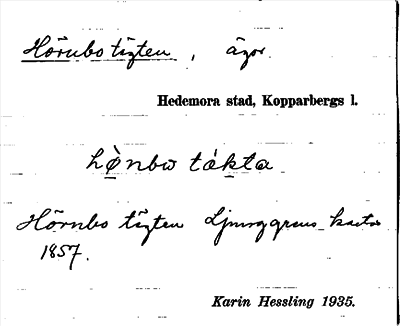 Hörnbo tägten, ägor.
Hedemora stad, Kopparbergs l.
hö̀nbω tákta
Hörnbo tägten Ljunggrens karta
1857.
Karin Hessling 1935.